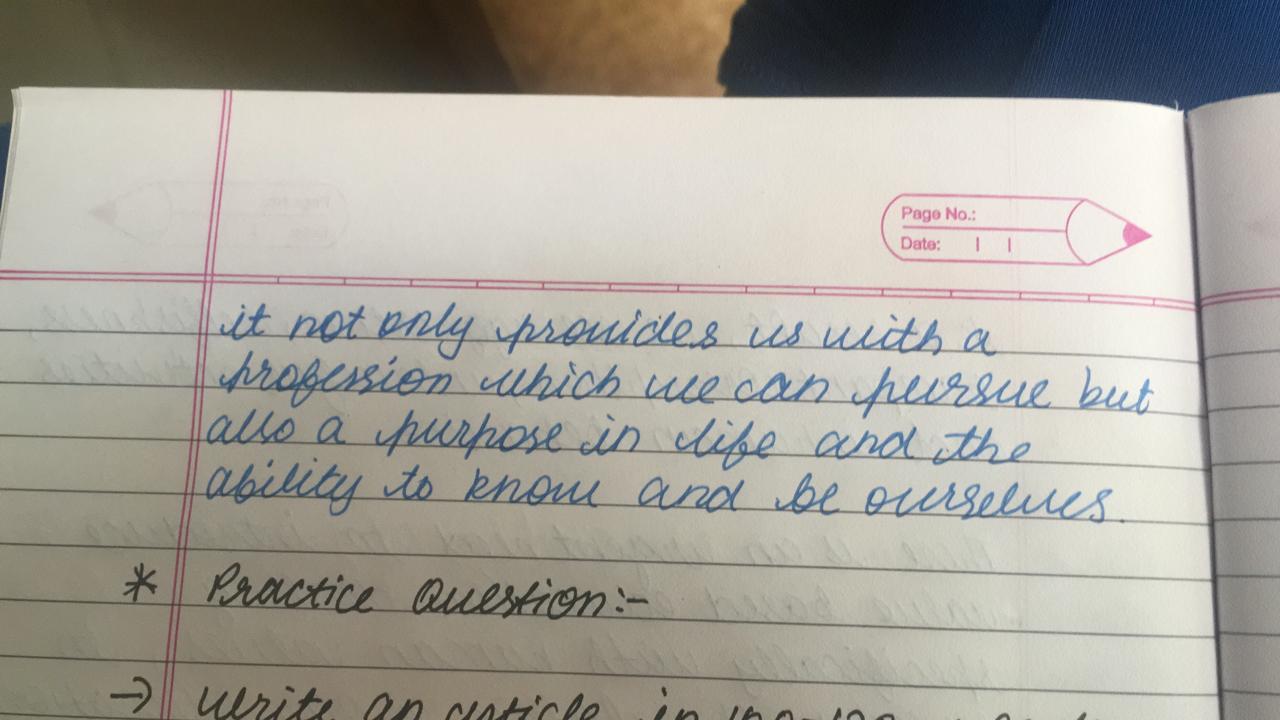 Page No.:
Date:
it not only provides us with a
profession which we can pursue but
also a purpose in life and the
ability to know and be ourselves.
* Practice Question:-
→ Write an article in